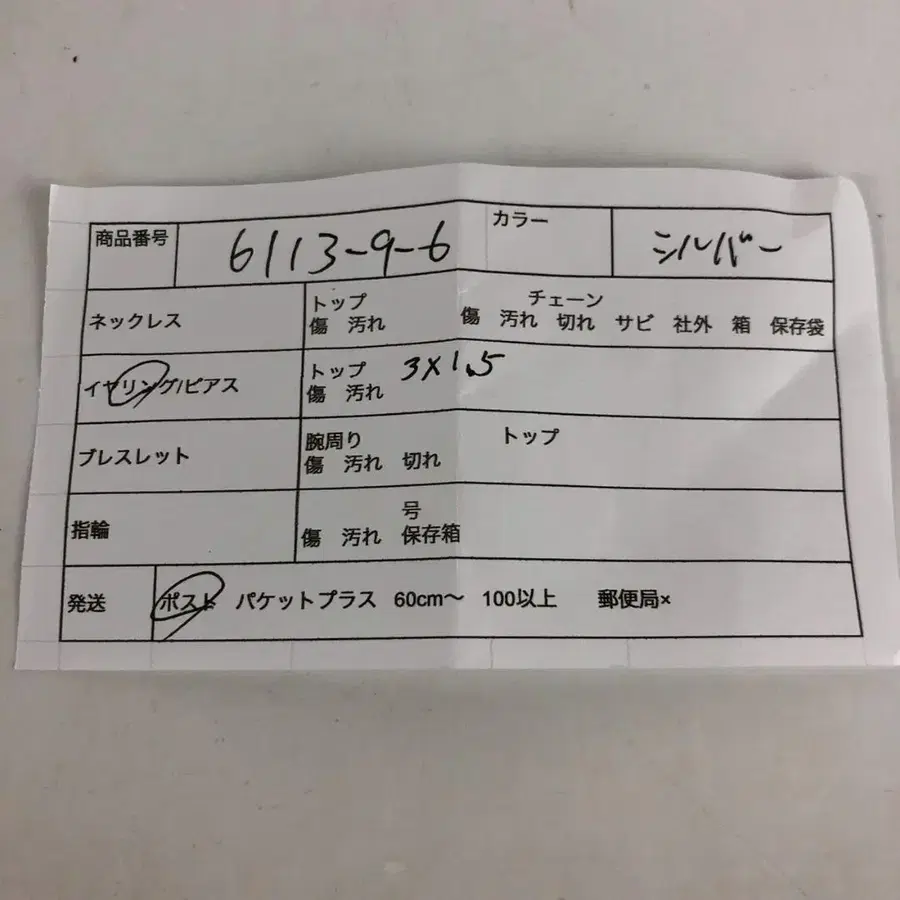 商品番号 6113-9-6 カラー シルバー
ネックレス トップ チェーン
傷 汚れ 傷 汚れ 切れ サビ 社外 箱 保存袋
イヤリング/ピアス トップ 3×1.5
傷 汚れ
ブレスレット 腕周り トップ
傷 汚れ 切れ
指輪 号
傷 汚れ 保存箱
発送 ポスト パケットプラス 60cm〜 100以上 郵便局×